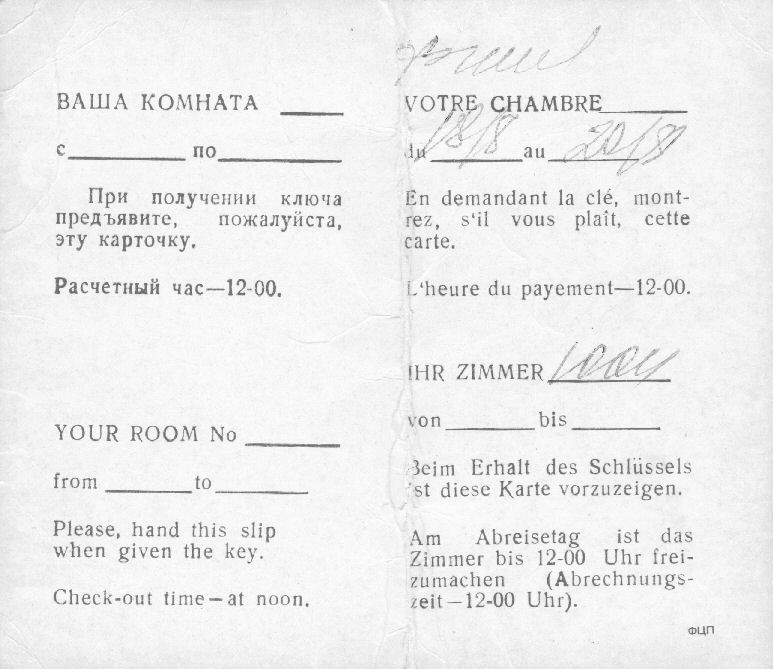 ВАША КОМНАТА
с по
При получении ключа
предъявите, пожалуйста,
эту карточку.
Расчетный час—12-00.
YOUR ROOM No
from to
Please, hand this slip
when given the key.
Check-out time—at noon.
VOTRE CHAMBRE
du 18/8 au 20/8
En demandant la clé, mont-
rez, s'il vous plaît, cette
carte.
L'heure du payement—12-00.
IHR ZIMMER 1004
von bis
Beim Erhalt des Schlüssels
ist diese Karte vorzuzeigen.
Am Abreisetag ist das
Zimmer bis 12-00 Uhr frei-
zumachen (Abrechnungs-
zeit—12-00 Uhr).
ФЦП